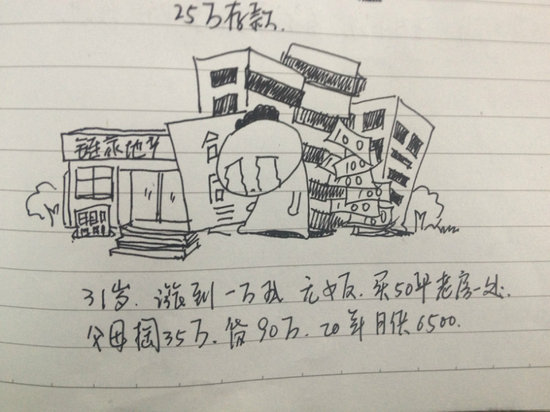 25万存款.
链家地产
合
100
100
100
100
31岁. 涨到一万 无女友. 买50平老房一处.
父母掏35万. 贷90万. 20年月供6500.